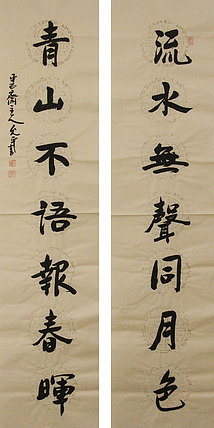 流水無聲同月色
青山不語報春暉